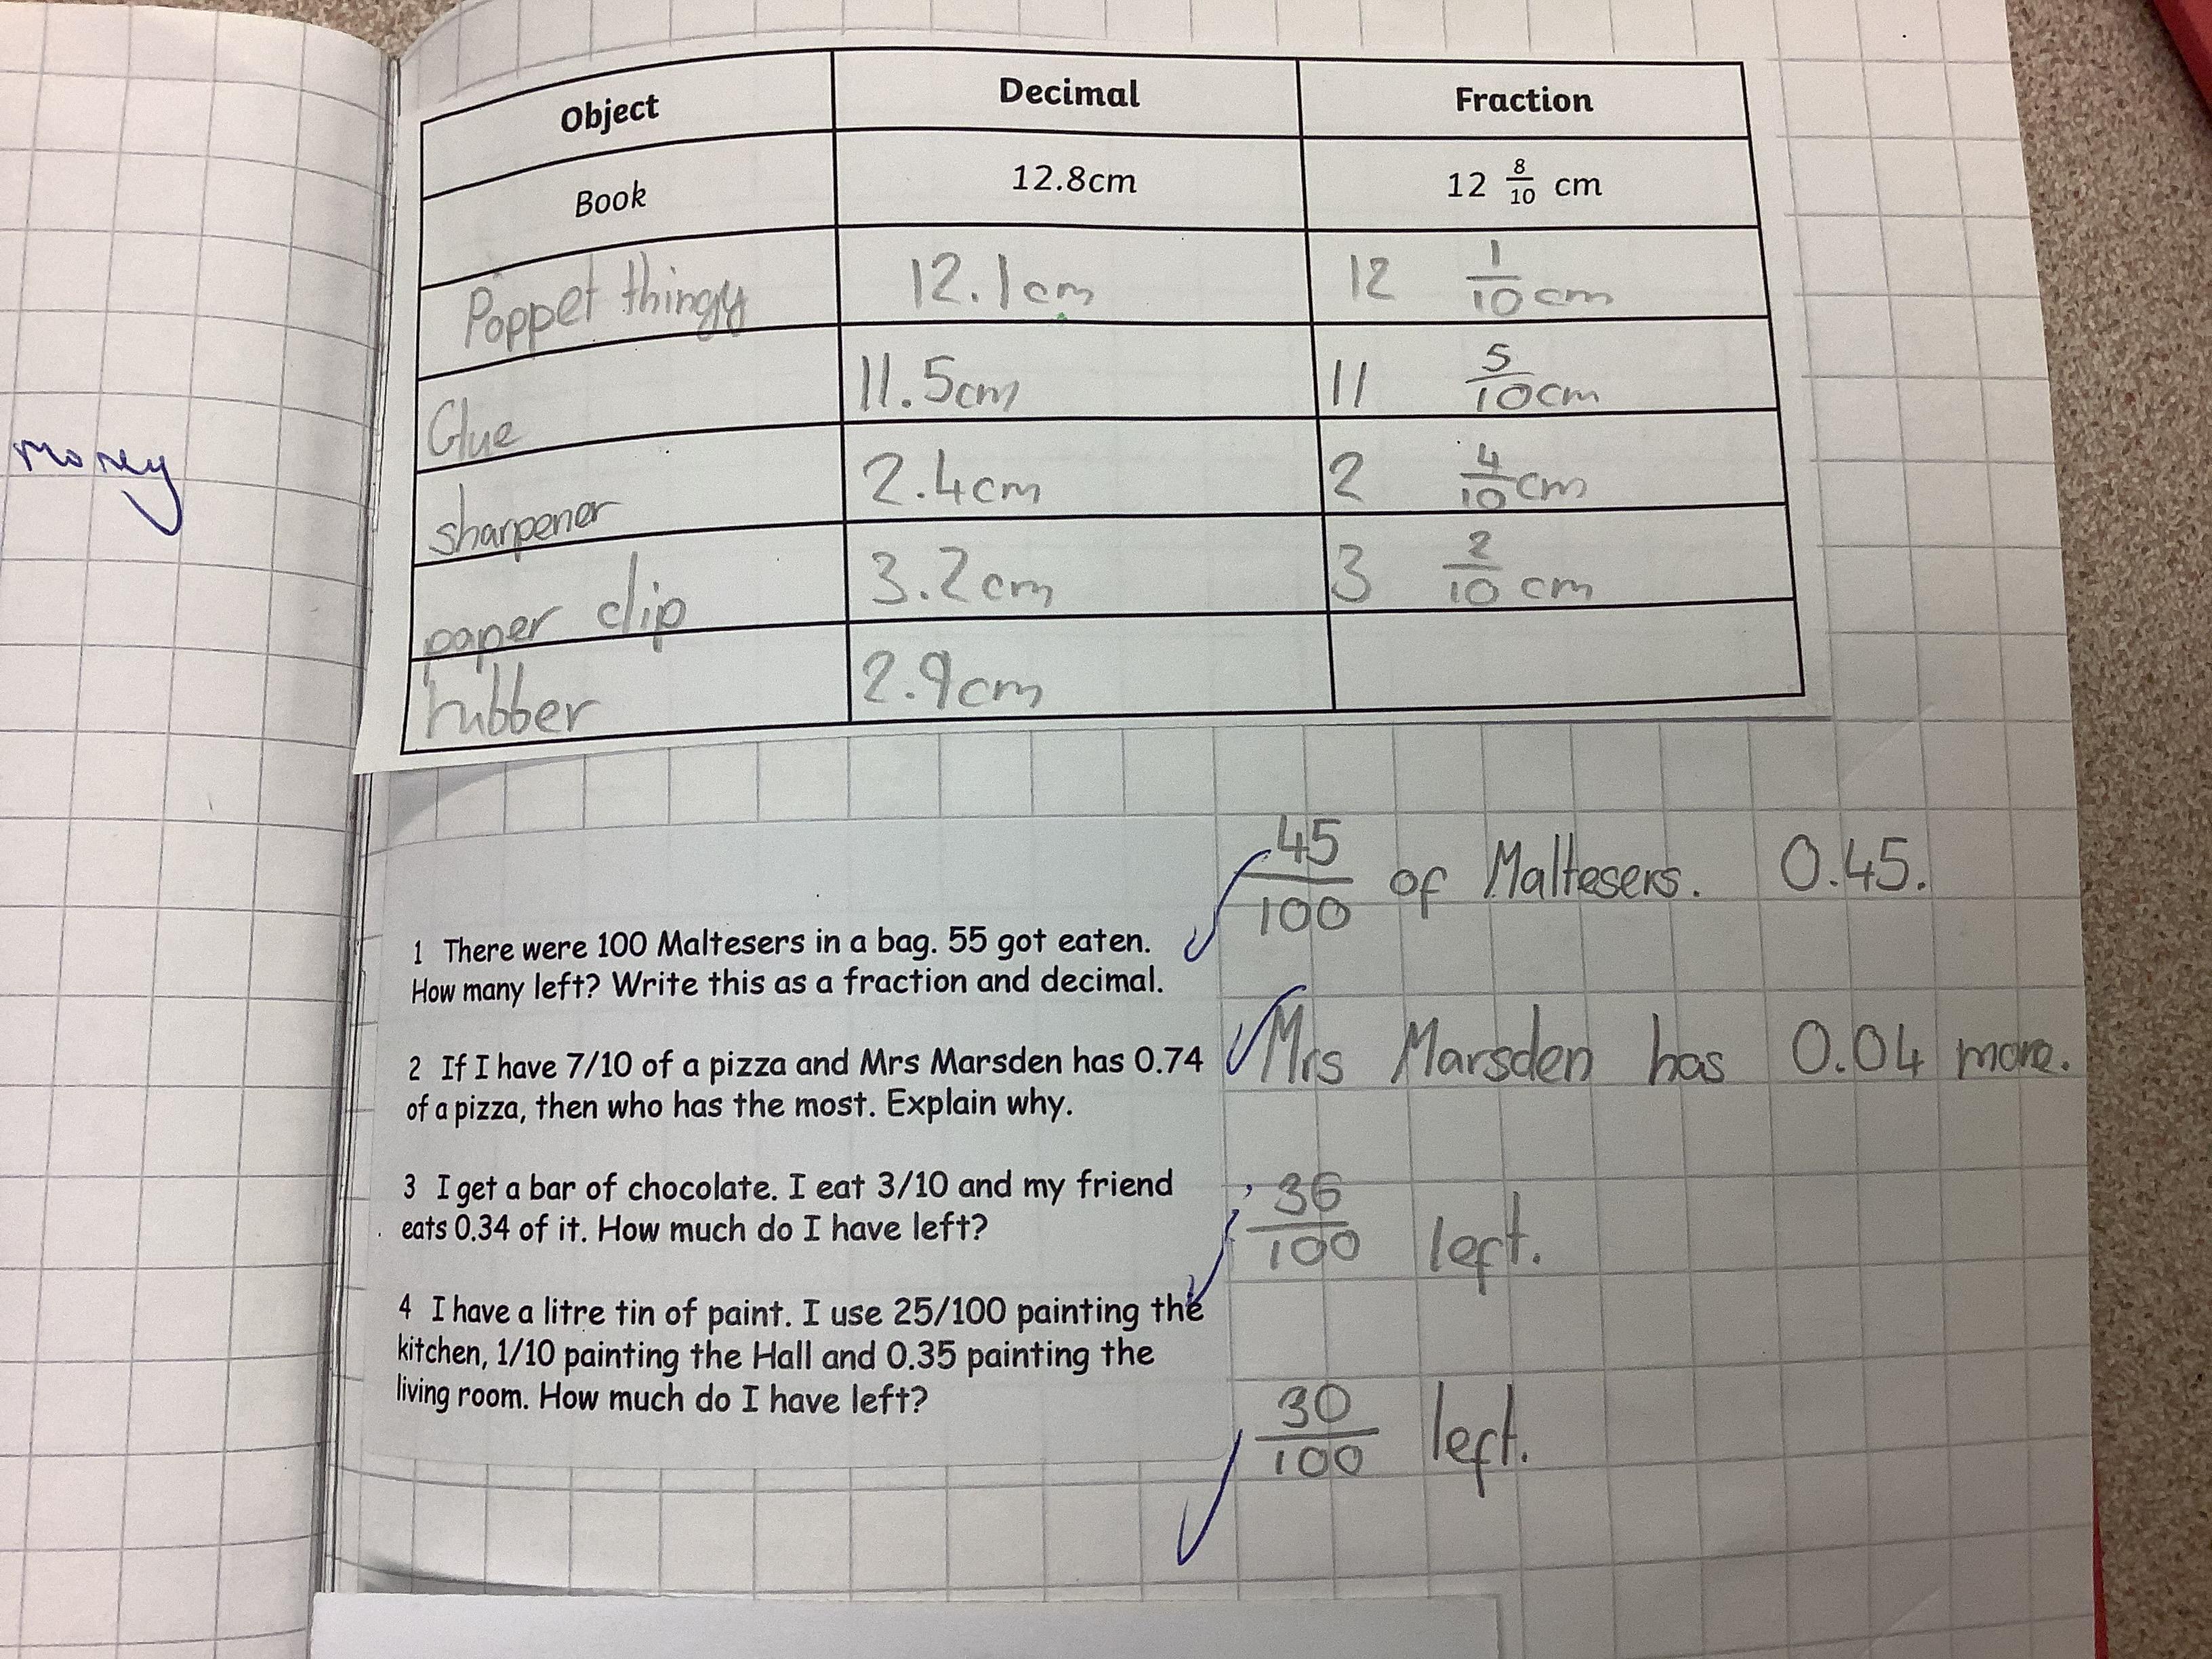 money
Object Decimal Fraction
Book 12.8cm 12 8/10 cm
Poppet thingy 12.1cm 12 1/10 cm
Glue 11.5cm 11 5/10 cm
sharpener 2.4cm 2 4/10 cm
paper clip 3.2cm 3 2/10 cm
rubber 2.9cm
45/100 of Maltesers. 0.45.
1 There were 100 Maltesers in a bag. 55 got eaten.
How many left? Write this as a fraction and decimal.
Mrs Marsden has 0.04 more.
2 If I have 7/10 of a pizza and Mrs Marsden has 0.74
of a pizza, then who has the most. Explain why.
3 I get a bar of chocolate. I eat 3/10 and my friend
eats 0.34 of it. How much do I have left?
36/100 left.
4 I have a litre tin of paint. I use 25/100 painting the
kitchen, 1/10 painting the Hall and 0.35 painting the
living room. How much do I have left?
30/100 left.